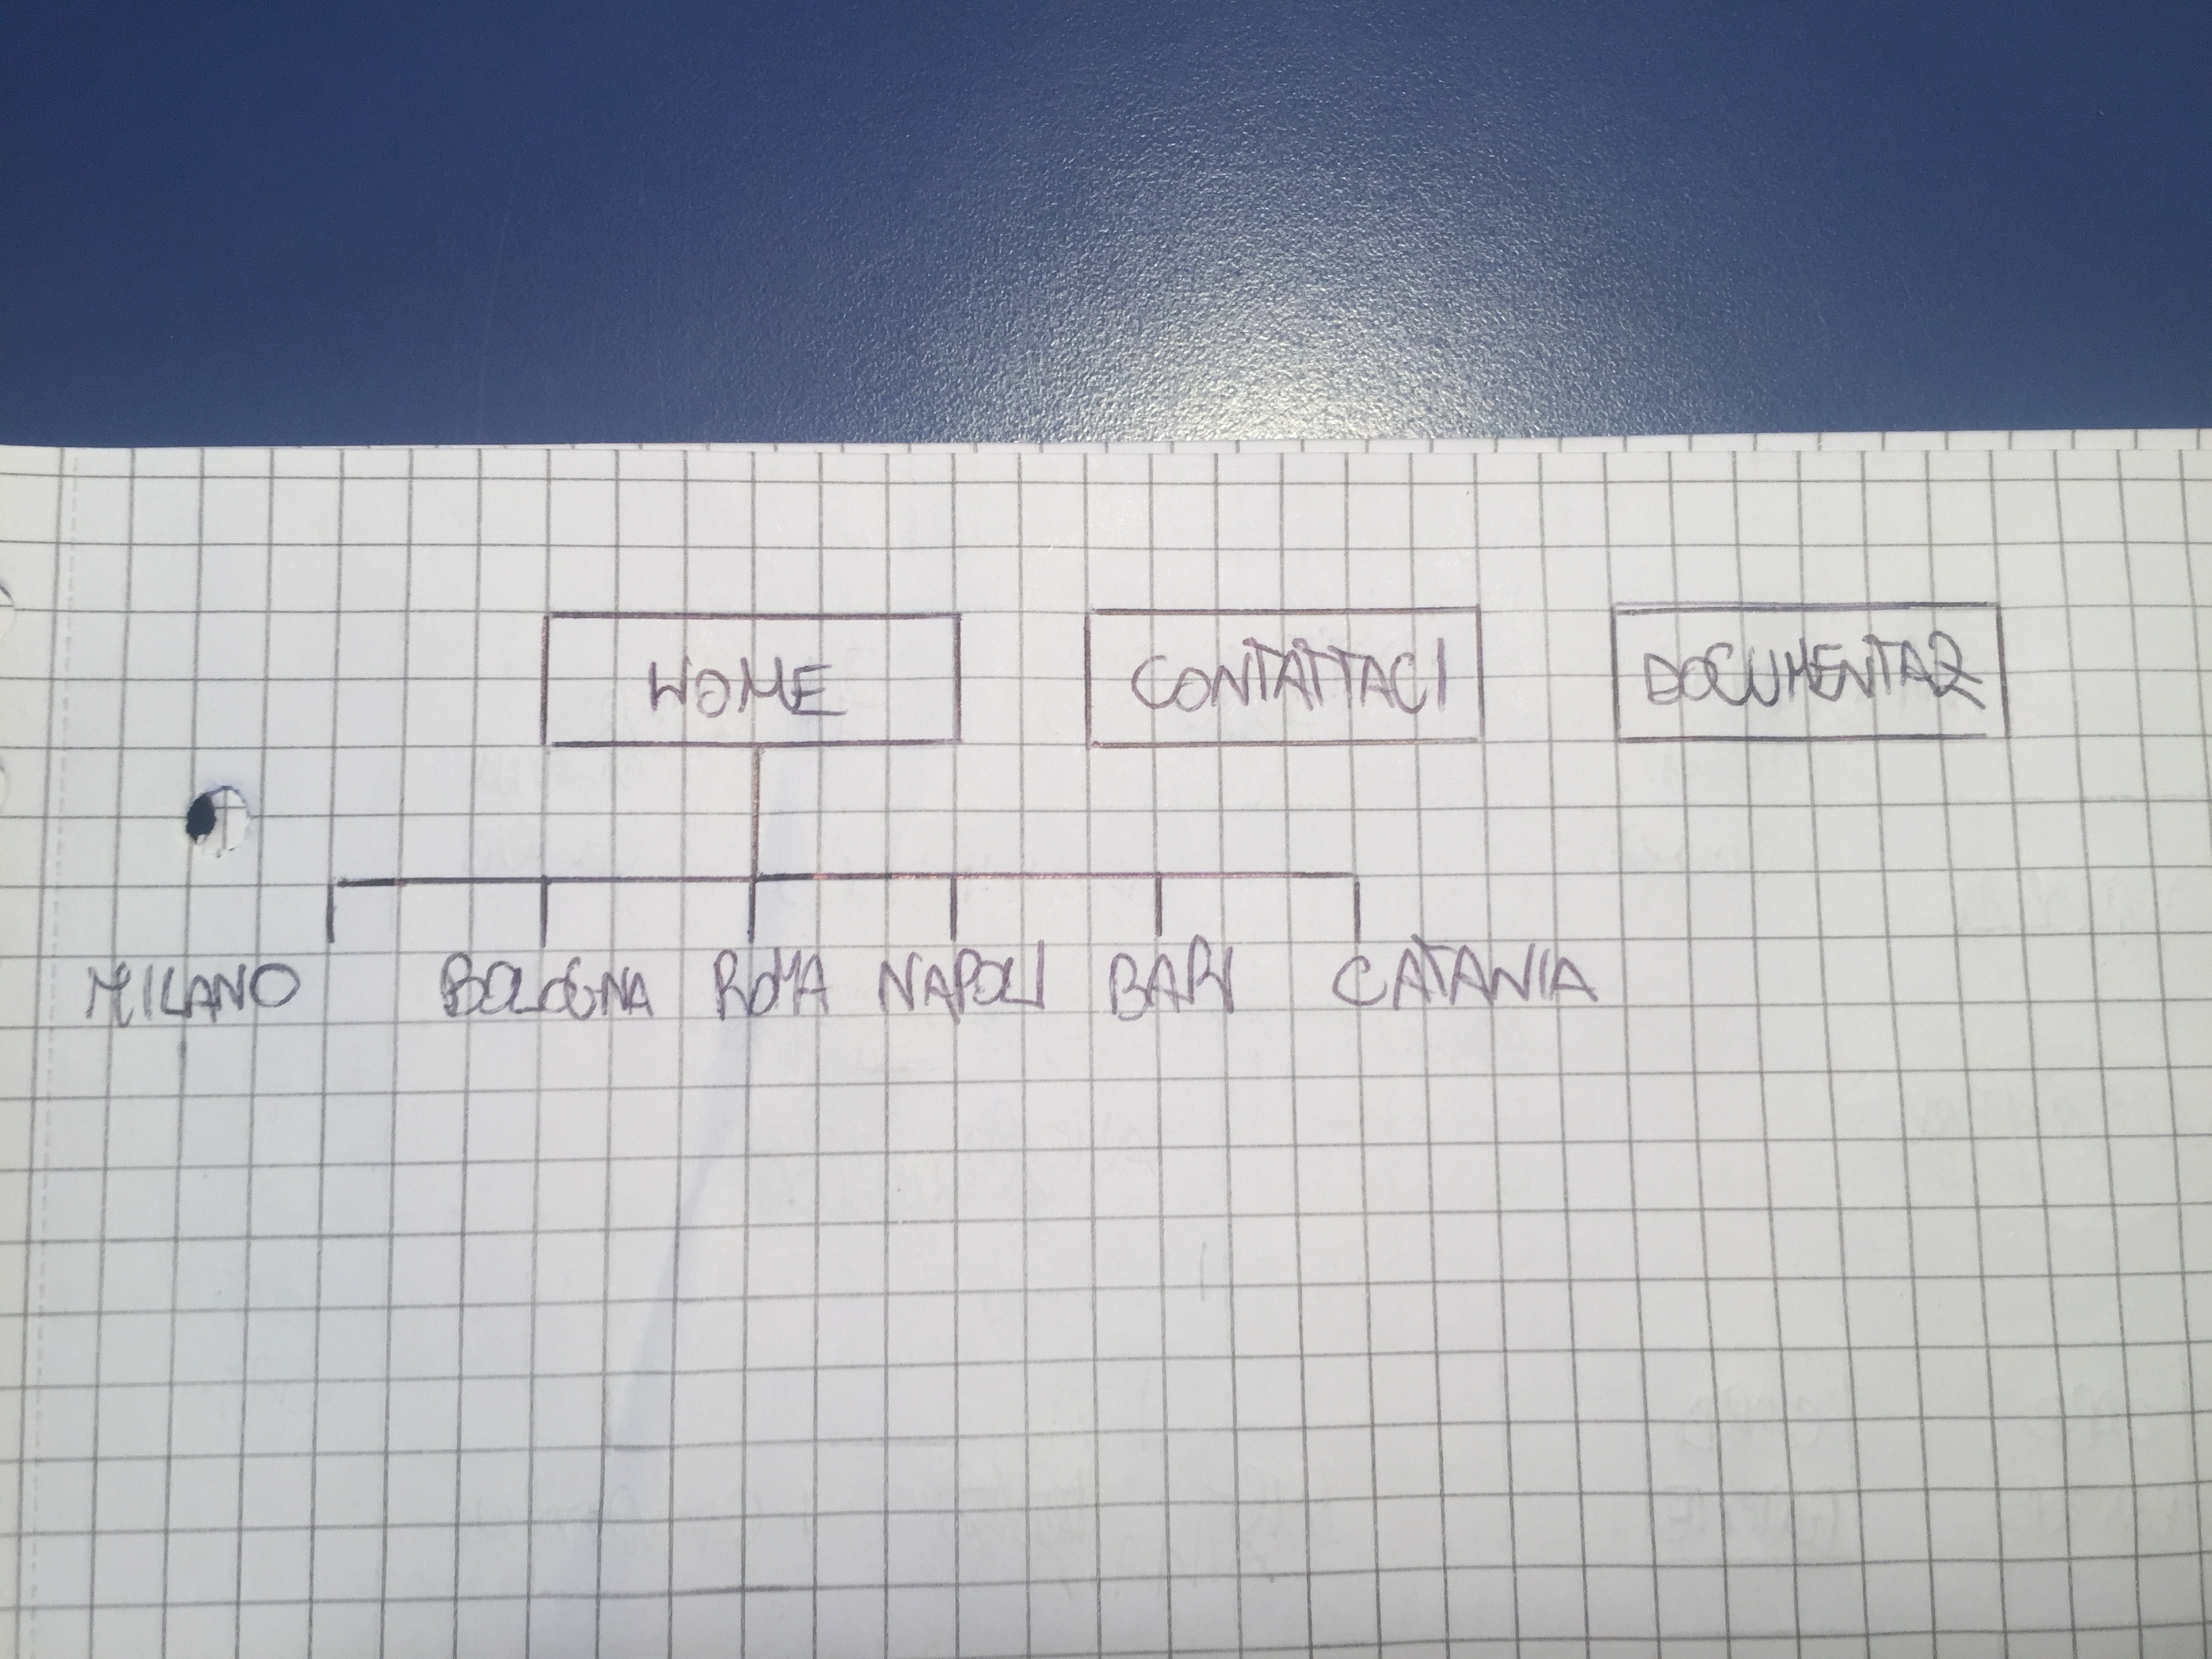 HOME CONTATTACI DOCUMENTAZ
MILANO BOLOGNA ROMA NAPOLI BARI CATANIA